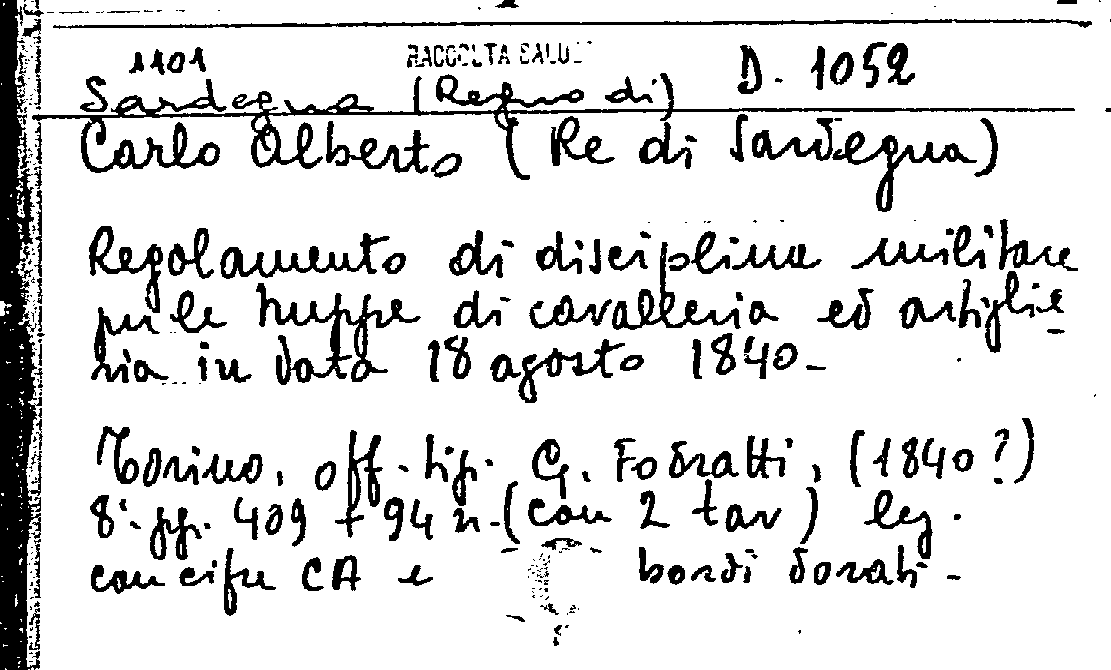 1101 RACCOLTA SALU D. 1052
Sardegna (Regno di)
Carlo Alberto (Re di Sardegna)
Regolamento di disciplina militare
per le truppe di cavalleria ed artiglie
ria in data 18 agosto 1840-
Torino, off. tip. G. Fodratti, (1840?)
8°. pp. 409 + 94 n. (con 2 tav) leg.
con cifre CA e bordi dorati -